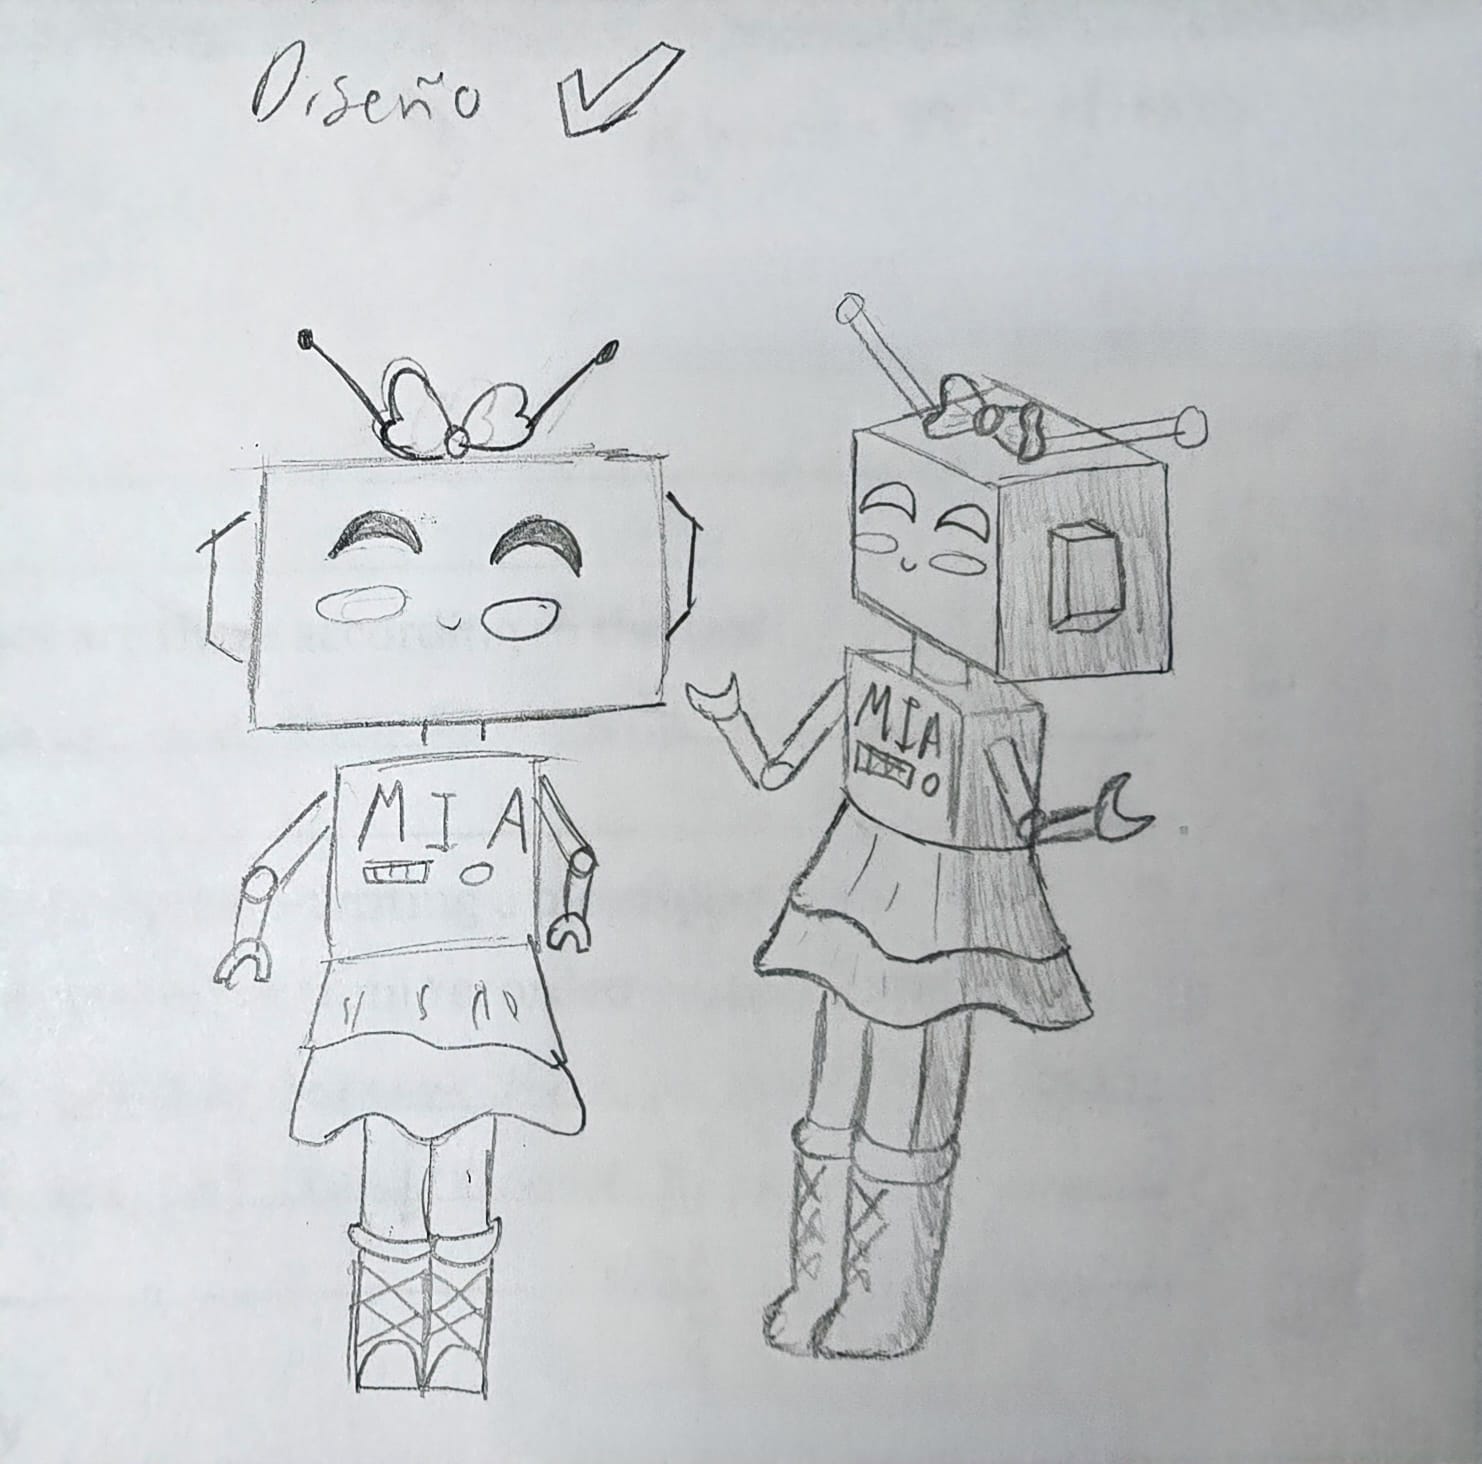 Diseño
MIA
MIA